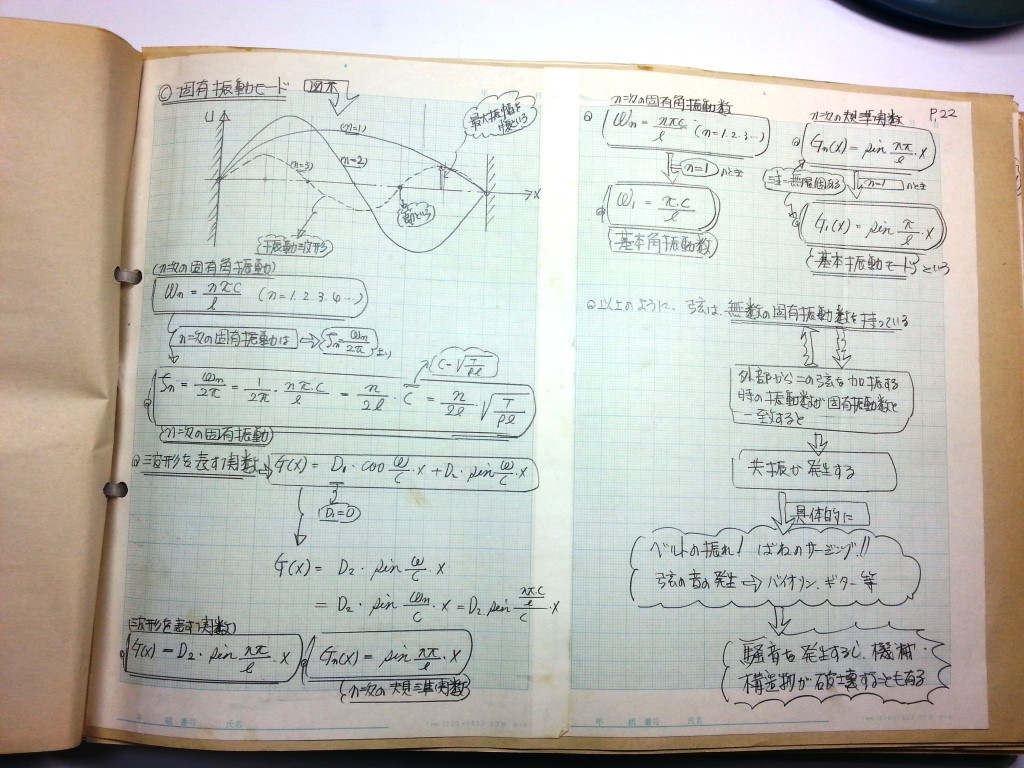 © 固有振動モード 図示
U
(n=1)
n=2)
n=3)
最大振幅を
腹という
節という
x
振動波形
(n次の固有角振動)
ωn = nπc/l (n=1.2.3.4…)
n次の固有振動は ⇒ fn=ωn/2π より
C=√T/ρl
fn = ωn/2π = 1/2π · nπ.c/l = n/2l · C = n/2l · √T/ρl
n次の固有振動
◎ 波形を表す関数 ⇒ G(x) = D1 · cos ω/c · x + D2 · sin ω/c · x
D1=0
G(x) = D2 · sin ω/c · x
= D2 · sin ωn/c · x = D2 · sin (nπ.c/l)/c · x
(波形を表す関数)
G(x) = D2 · sin nπ/l · x
Gn(x) = sin nπ/l · x
n次の規準関数
年 組 番号 氏名
P.22
n=次の固有角振動数
ωn = nπc/l (n=1.2.3…)
n=1 のとき
ω1 = π.c/l
基本角振動数
n=次の規準関数
Gn(x) = sin nπ/l · x
n=1 のとき
G1(x) = sin π/l · x
基本振動モードという
◎ 以上のように、弦は、無数の固有振動数を持っている
外部からこの弦を加振する
時の振動数が固有振動数と
一致すると
共振が発生する
具体的に
ベルトの振れ! ばねのサージング!!
弦の音の発生 ⇒ バイオリン、ギター等
騒音を発生するし、機械・
構造物が破壊することも有る
年 組 番号 氏名